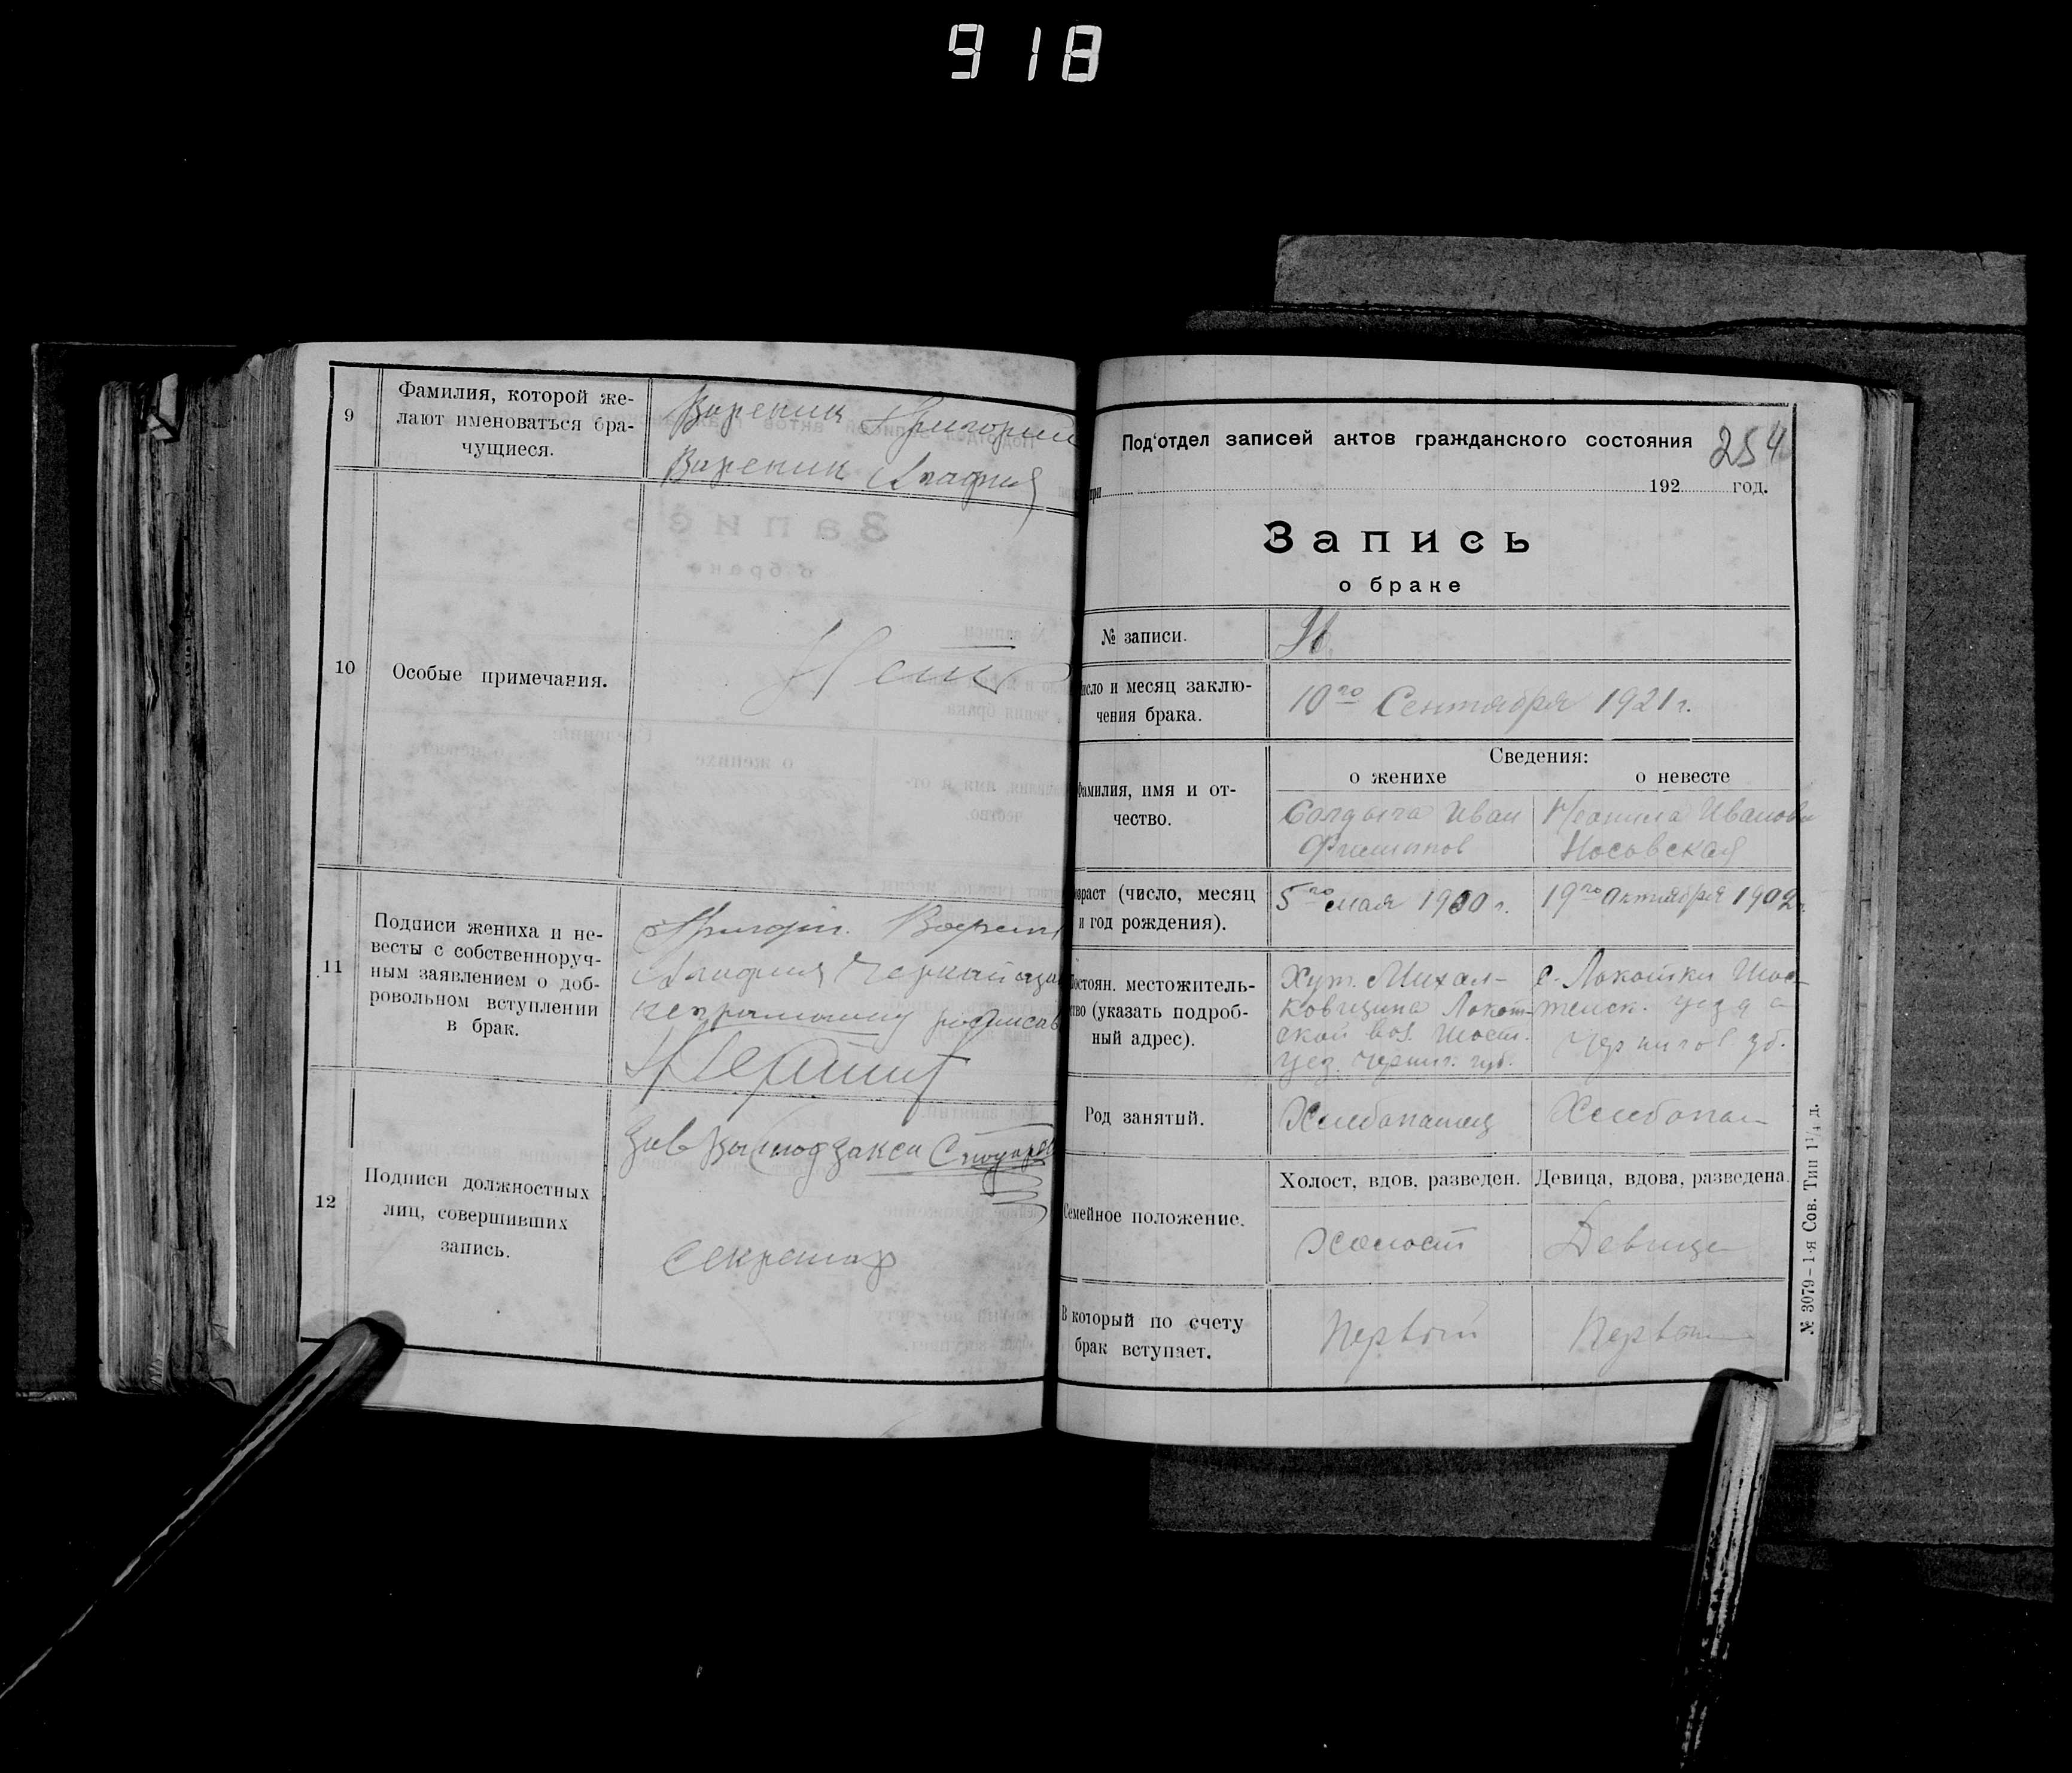 918
9
Фамилия, которой же-
лают именоваться бра-
чущиеся.
Вареник Григорий
Вареник Агафия
10
Особые примечания.
Нет
11
Подписи жениха и не-
весты с собственноруч-
ным заявлением о доб-
ровольном вступлении
в брак.
Григорій
Агафия
неграмотну
12
Подписи должностных
лиц, совершивших
запись.
Зав
Секретар
Под'отдел записей актов гражданского состояния
254
при 192 год.
Запись
о браке
№ записи.
число и месяц заклю-
чения брака.
10го Сентября 1921 г.
Сведения:
о женихе
о невесте
Фамилия, имя и от-
чество.
Иван
Филипов
Неонила Иванов
Носовская
Возраст (число, месяц
и год рождения).
5го мая 1900 г.
19го Октября 1902 г.
Постоян. местожитель-
ство (указать подроб-
ный адрес).
Хут. Михал-
ковщина Локот-
ской вол. Шост.
уез. Черниг. губ.
с. Локотки Шос-
тенск. уезда
Чернигов губ.
Род занятий.
Хлебопашец
Хлебопаш
Семейное положение.
Холост, вдов, разведен.
Девица, вдова, разведена.
Холост
Девица
В который по счету
брак вступает.
Первый
Первый
№ 3079 – 1-я Сов. Тип 1¹/₄ д.